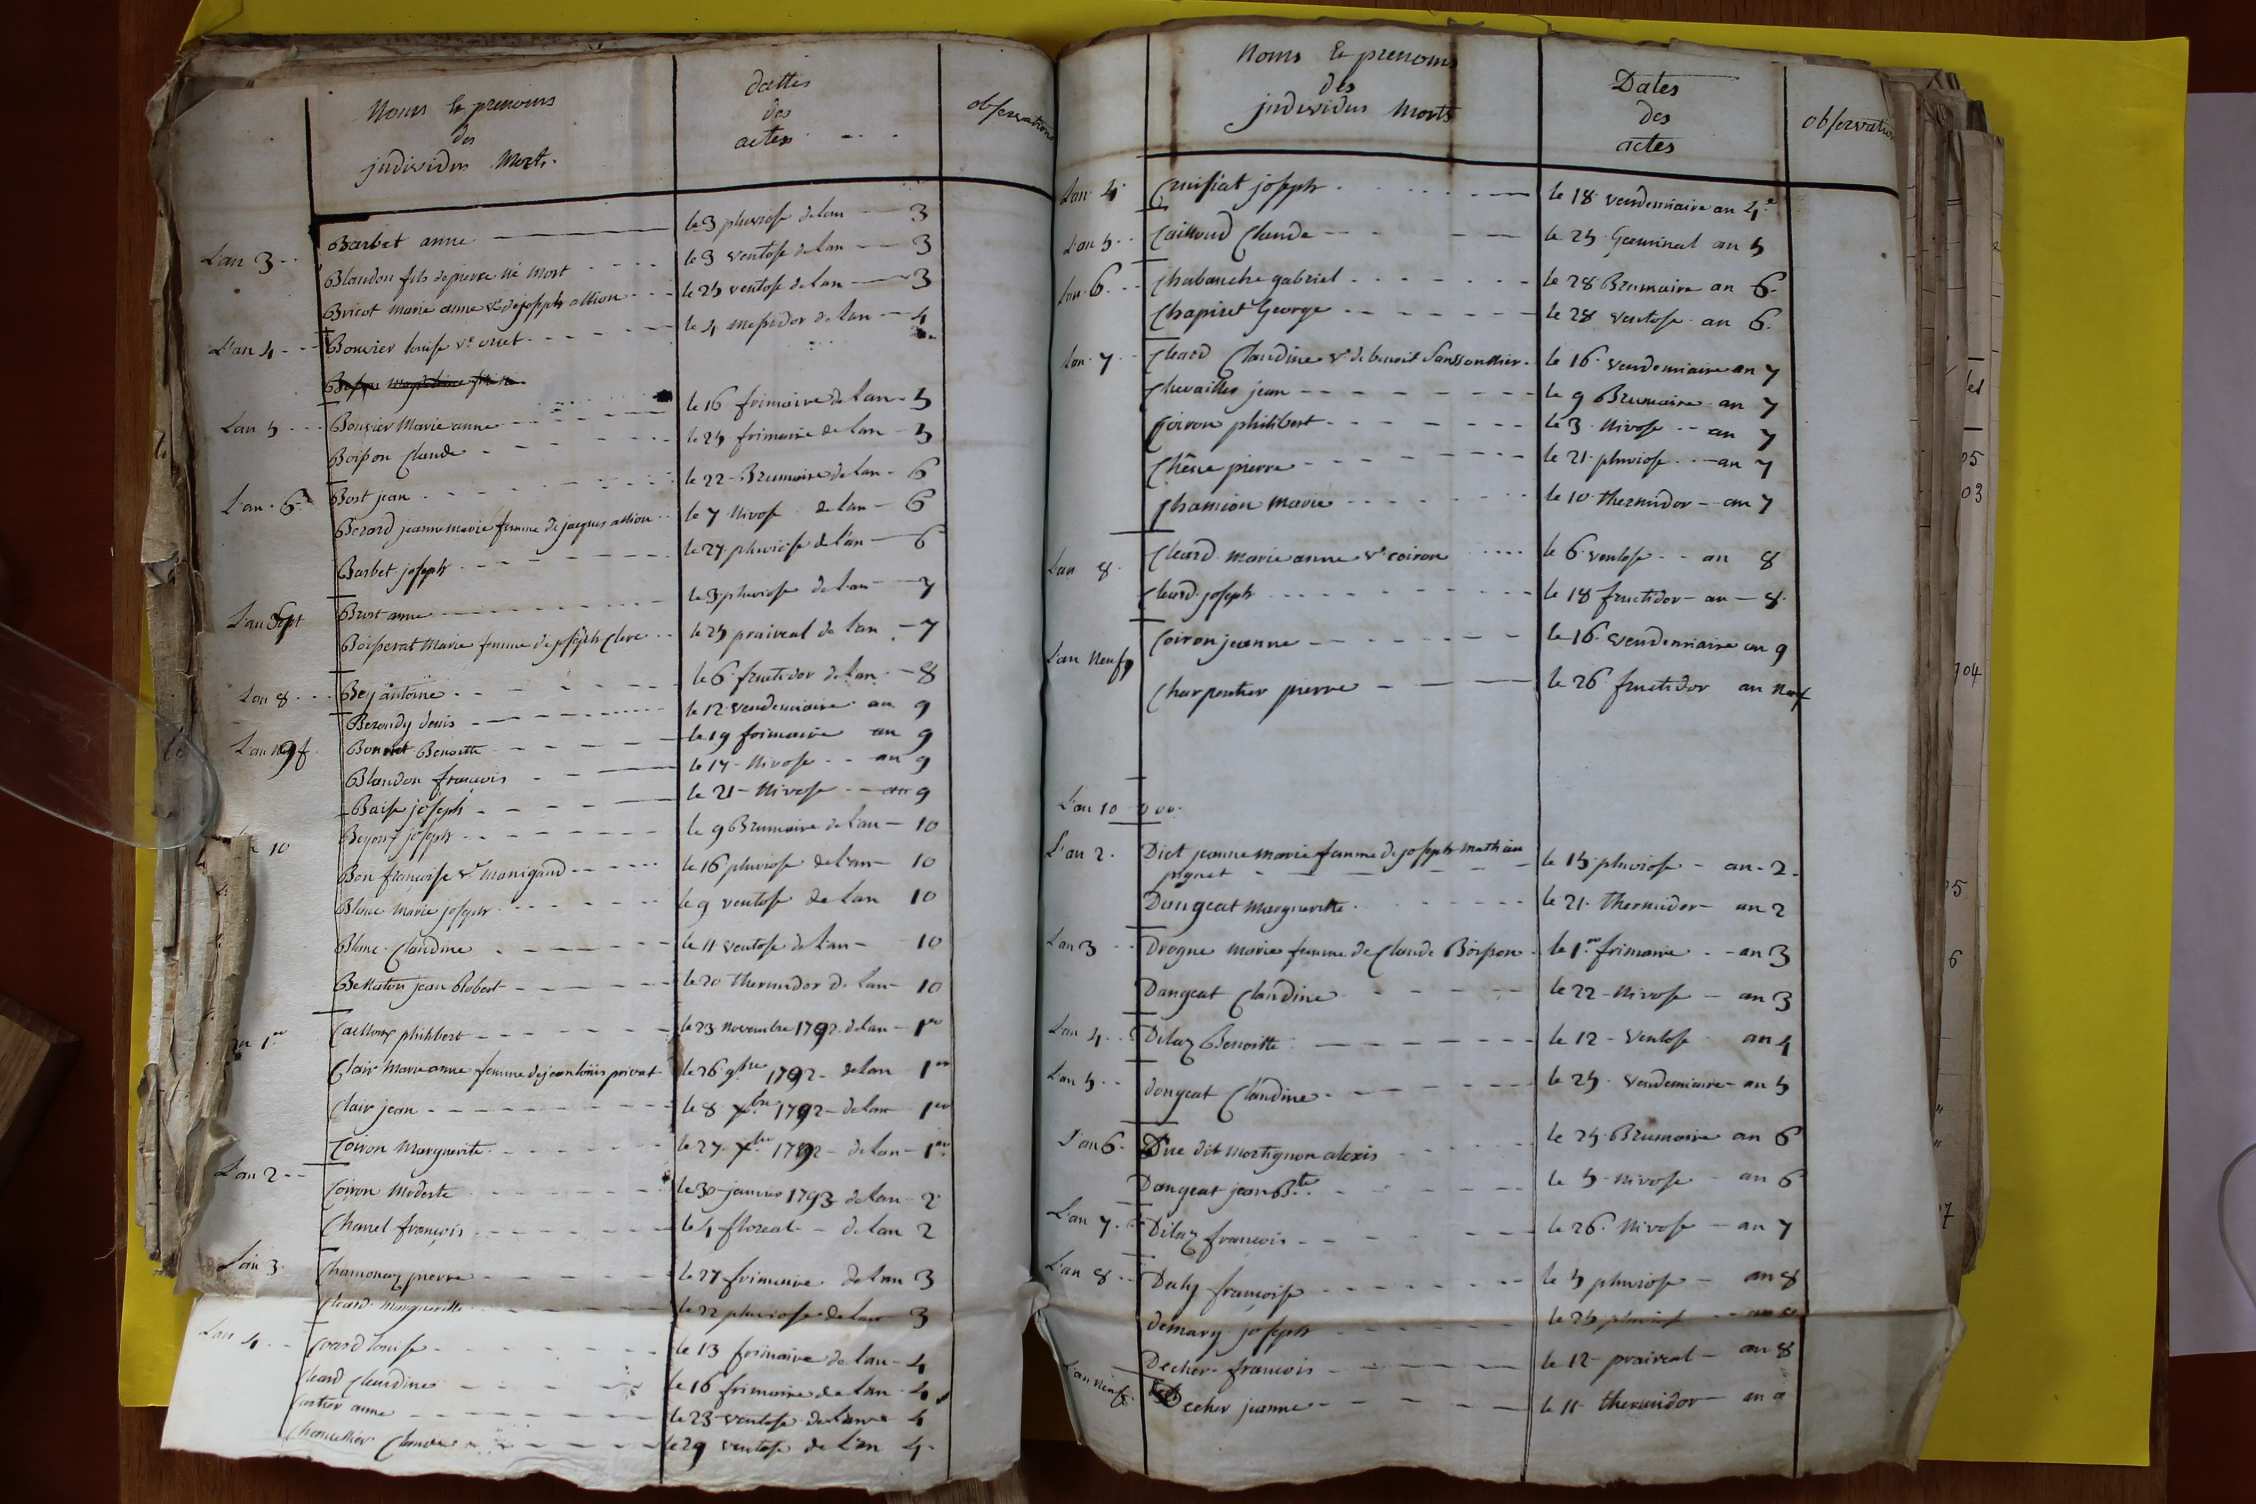 Noms & prenoms
des
jndividus Morts.
dattes
des
actes
observations
L'an 3
Barbet anne le 3 pluviose de lan 3
Blandon fils de pierre né mort le 3 ventose de lan 3
Bricot marie anne ve de joseph allion le 25 ventose de lan 3
L'an 4 Bouvier louise ve le 4 messidor de lan 4
L'an 5 Bouvier Marie anne le 16 frimaire de lan 5
Boisson Claude le 25 frimaire de lan 5
L'an 6 Bost jean le 22 Brumaire de lan 6
Berard jeanne marie femme de jacques allion le 7 Nivose de lan 6
Barbet joseph le 27 pluviose de lan 6
L'an Sept Brost anne le 3 pluviose de lan 7
Boisserat Marie femme de joseph Clerc le 25 praireal de lan 7
L'an 8 Bey antoine le 6 fructidor de lan 8
L'an 9 Berondy denis le 12 vendemiaire an 9
Bonnet Benoitte le 19 frimaire an 9
Blandon francois le 17 Nivose an 9
Baise joseph le 21 Nivose an 9
10 joseph le 9 Brumaire de lan 10
Bon francoise ve Manigand le 16 pluviose de lan 10
Blanc Marie joseph le 9 ventose de lan 10
Blanc Claudine le 11 ventose de lan 10
Bellaton jean Robert le 20 thermidor de lan 10
1er Cailloux philibert le 23 novembre 1792 de lan 1er
Clair Marie anne femme de jean louis privat le 26 9bre 1792 de lan 1er
Clair jean le 8 Xbre 1792 de lan 1er
Coiron Marguerite le 27 Xbre 1792 de lan 1er
L'an 2 Coiron Modeste le 30 janvier 1793 de lan 2
Charvel françois le 4 floreal de lan 2
L'an 3 Chamonay pierre le 27 frimaire de lan 3
Cleard Marguerite le 22 pluviose de lan 3
L'an 4 louise le 13 frimaire de lan 4
Cleard Claudine le 16 frimaire de lan 4
Cartier anne le 23 ventose de lan 4
Chancellier Claude le 29 ventose de l'an 4
Noms & prenoms
des
jndividus Morts
Dates
des
actes
observations
L'an 4 Cruisiat joseph le 18 vendemiaire an 4e
L'an 5 Cailloud Claude le 25 Germinal an 5
L'an 6 Chabanche gabriel le 28 Brumaire an 6
Chapiret George le 28 ventose an 6
L'an 7 Cleard Claudine ve de benoit le 16 vendemiaire an 7
Chevailler jean le 9 Brumaire an 7
Coiron philibert le 3 Nivose an 7
Chêne pierre le 21 pluviose an 7
Chamion Marie le 10 thermidor an 7
L'an 8 Cleard marie anne ve coiron le 6 ventose an 8
Cleard joseph le 18 fructidor an 8
L'an Neuf Coiron jeanne le 16 vendemiaire an 9
Charpentier pierre le 26 fructidor an neuf
L'an 10
L'an 2 Diet jeanne marie femme de joseph mathieu
pignet le 15 pluviose an 2
Dangeat Marguerite le 21 thermidor an 2
L'an 3 Drogne marie femme de Claude Boisson le 1er frimaire an 3
Dangeat Claudine le 22 Nivose an 3
L'an 4 Dilaz Benoitte le 12 Ventose an 4
L'an 5 dongeat Claudine le 25 Vendemiaire an 5
L'an 6 Due dit mortignon alexis le 25 Brumaire an 6
Dangeat jean Bte le 5 nivose an 6
L'an 7 Dilaz francois le 26 Nivose an 7
L'an 8 Daly françoise le 5 pluviose an 8
demary joseph le 25 an 8
Decher francois le 12 prairéal an 8
L'an neuf Decher jeanne le 11 thermidor an 9